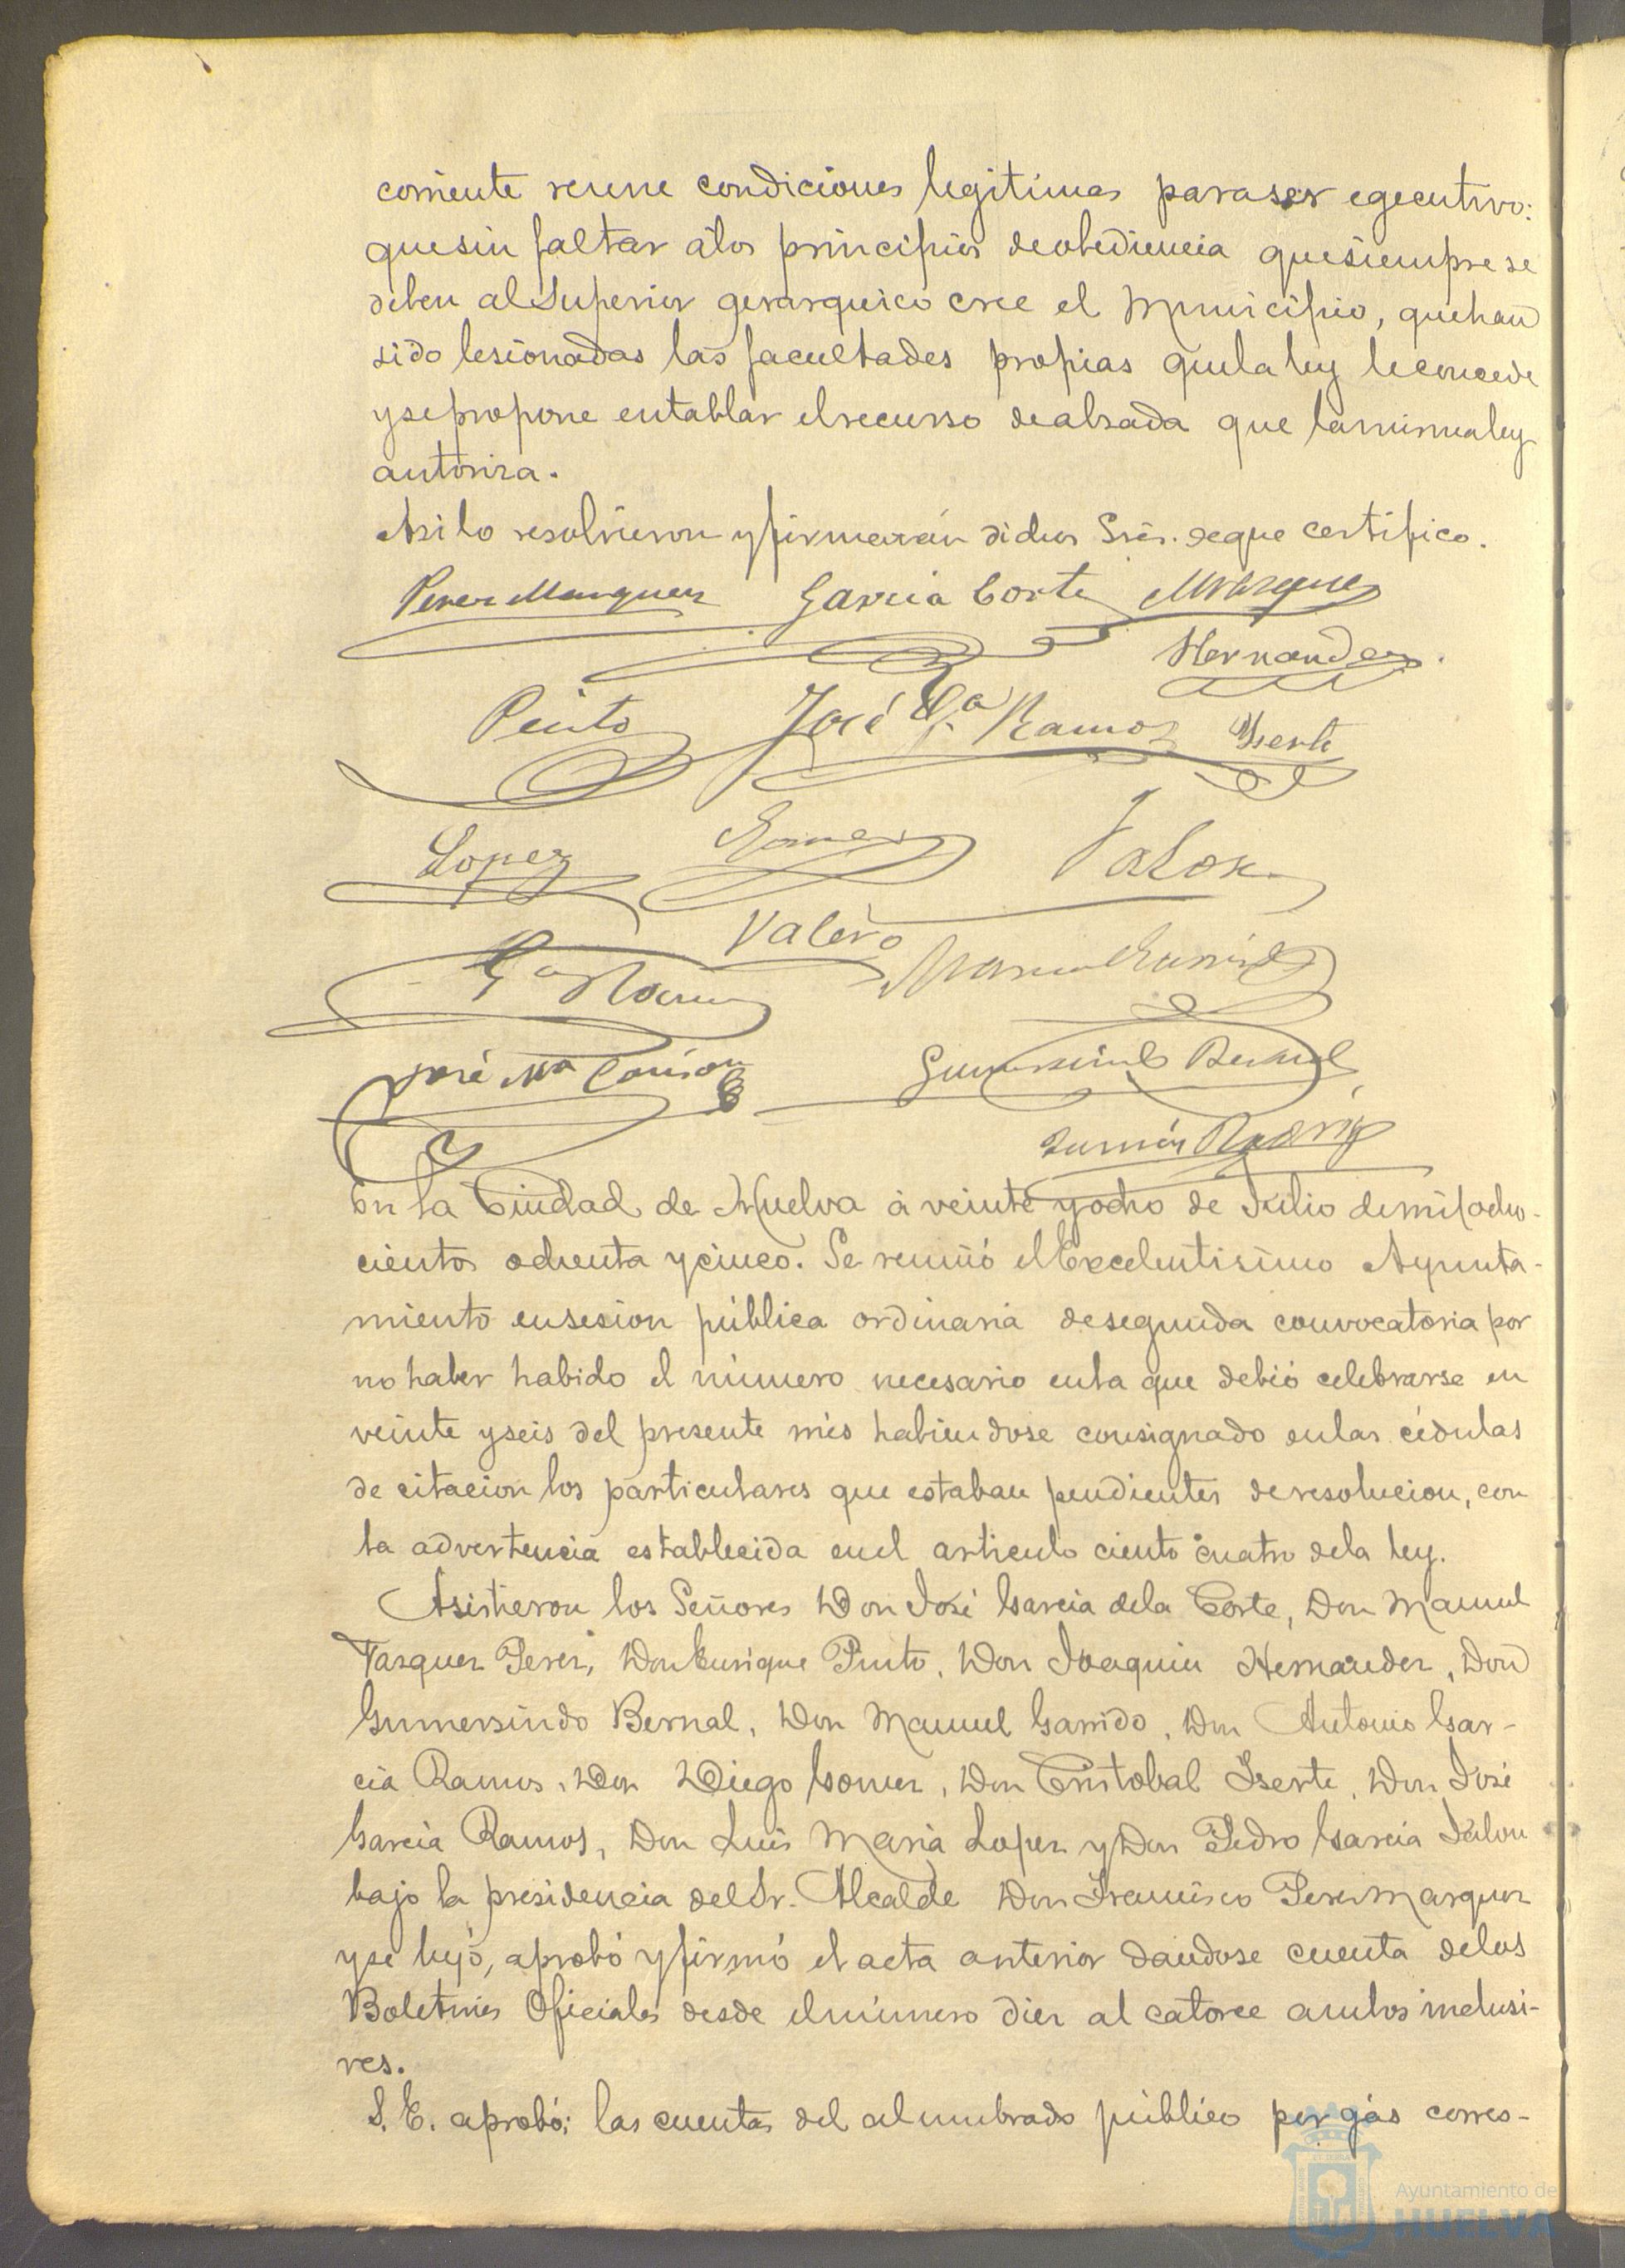 corriente reune condiciones legitimas para ser egecutivo:
que sin faltar á los principios de obediencia que siempre se
deben al Superior gerarquico cree el Municipio, que han
sido lesionadas las facultades propias que la ley le concede
y se propone entablar el recurso de alzada que la misma ley
autoriza.
Asi lo resolvieron y firmarán dichos Sres. de que certifico.
Perez Marquez Garcia Corte Vazquez
Hernandez
Pinto José Ga Ramos Yserte
Lopez Gomez Jalon
Valero
Ga Ramos Manuel Garrido
José Ma
Gumersindo Bernal
En la Ciudad de Huelva á veinte y ocho de Julio de mil ocho-
cientos ochenta y cinco. Se reunió el Excelentisimo Ayunta-
miento en sesion pública ordinaria de segunda convocatoria por
no haber habido el número necesario en la que debió celebrarse en
veinte y seis del presente mes habiendose consignado en las cédulas
de citacion los particulares que estaban pendientes de resolucion, con
la advertencia establecida en el articulo ciento cuatro de la ley.
Asistieron los Señores Don José Garcia de la Corte, Don Manuel
Vazquez Perez, Don Enrique Pinto, Don Joaquin Hernandez, Don
Gumersindo Bernal, Don Manuel Garrido, Don Antonio Gar-
cia Ramos, Don Diego Gomez, Don Cristobal Yserte, Don José
Garcia Ramos, Don Luis Maria Lopez y Don Pedro Garcia Jalon
bajo la presidencia del Sr. Alcalde Don Francisco Perez Marquez
y se leyó, aprobó y firmó el acta anterior dandose cuenta de los
Boletines Oficiales desde el número diez al catorce ambos inclusi-
ves.
S. E. aprobó: las cuentas del alumbrado público por gás corres-
Ayuntamiento de
HUELVA